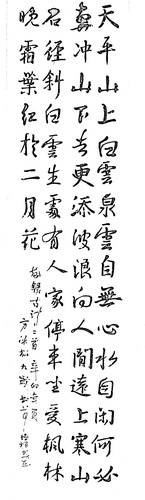 天平山上白雲泉雲自無心水自閑何必
奔冲山下去更添波浪向人間遠上寒山
石徑斜白雲生處有人家停車坐愛楓林
晚霜葉紅於二月花